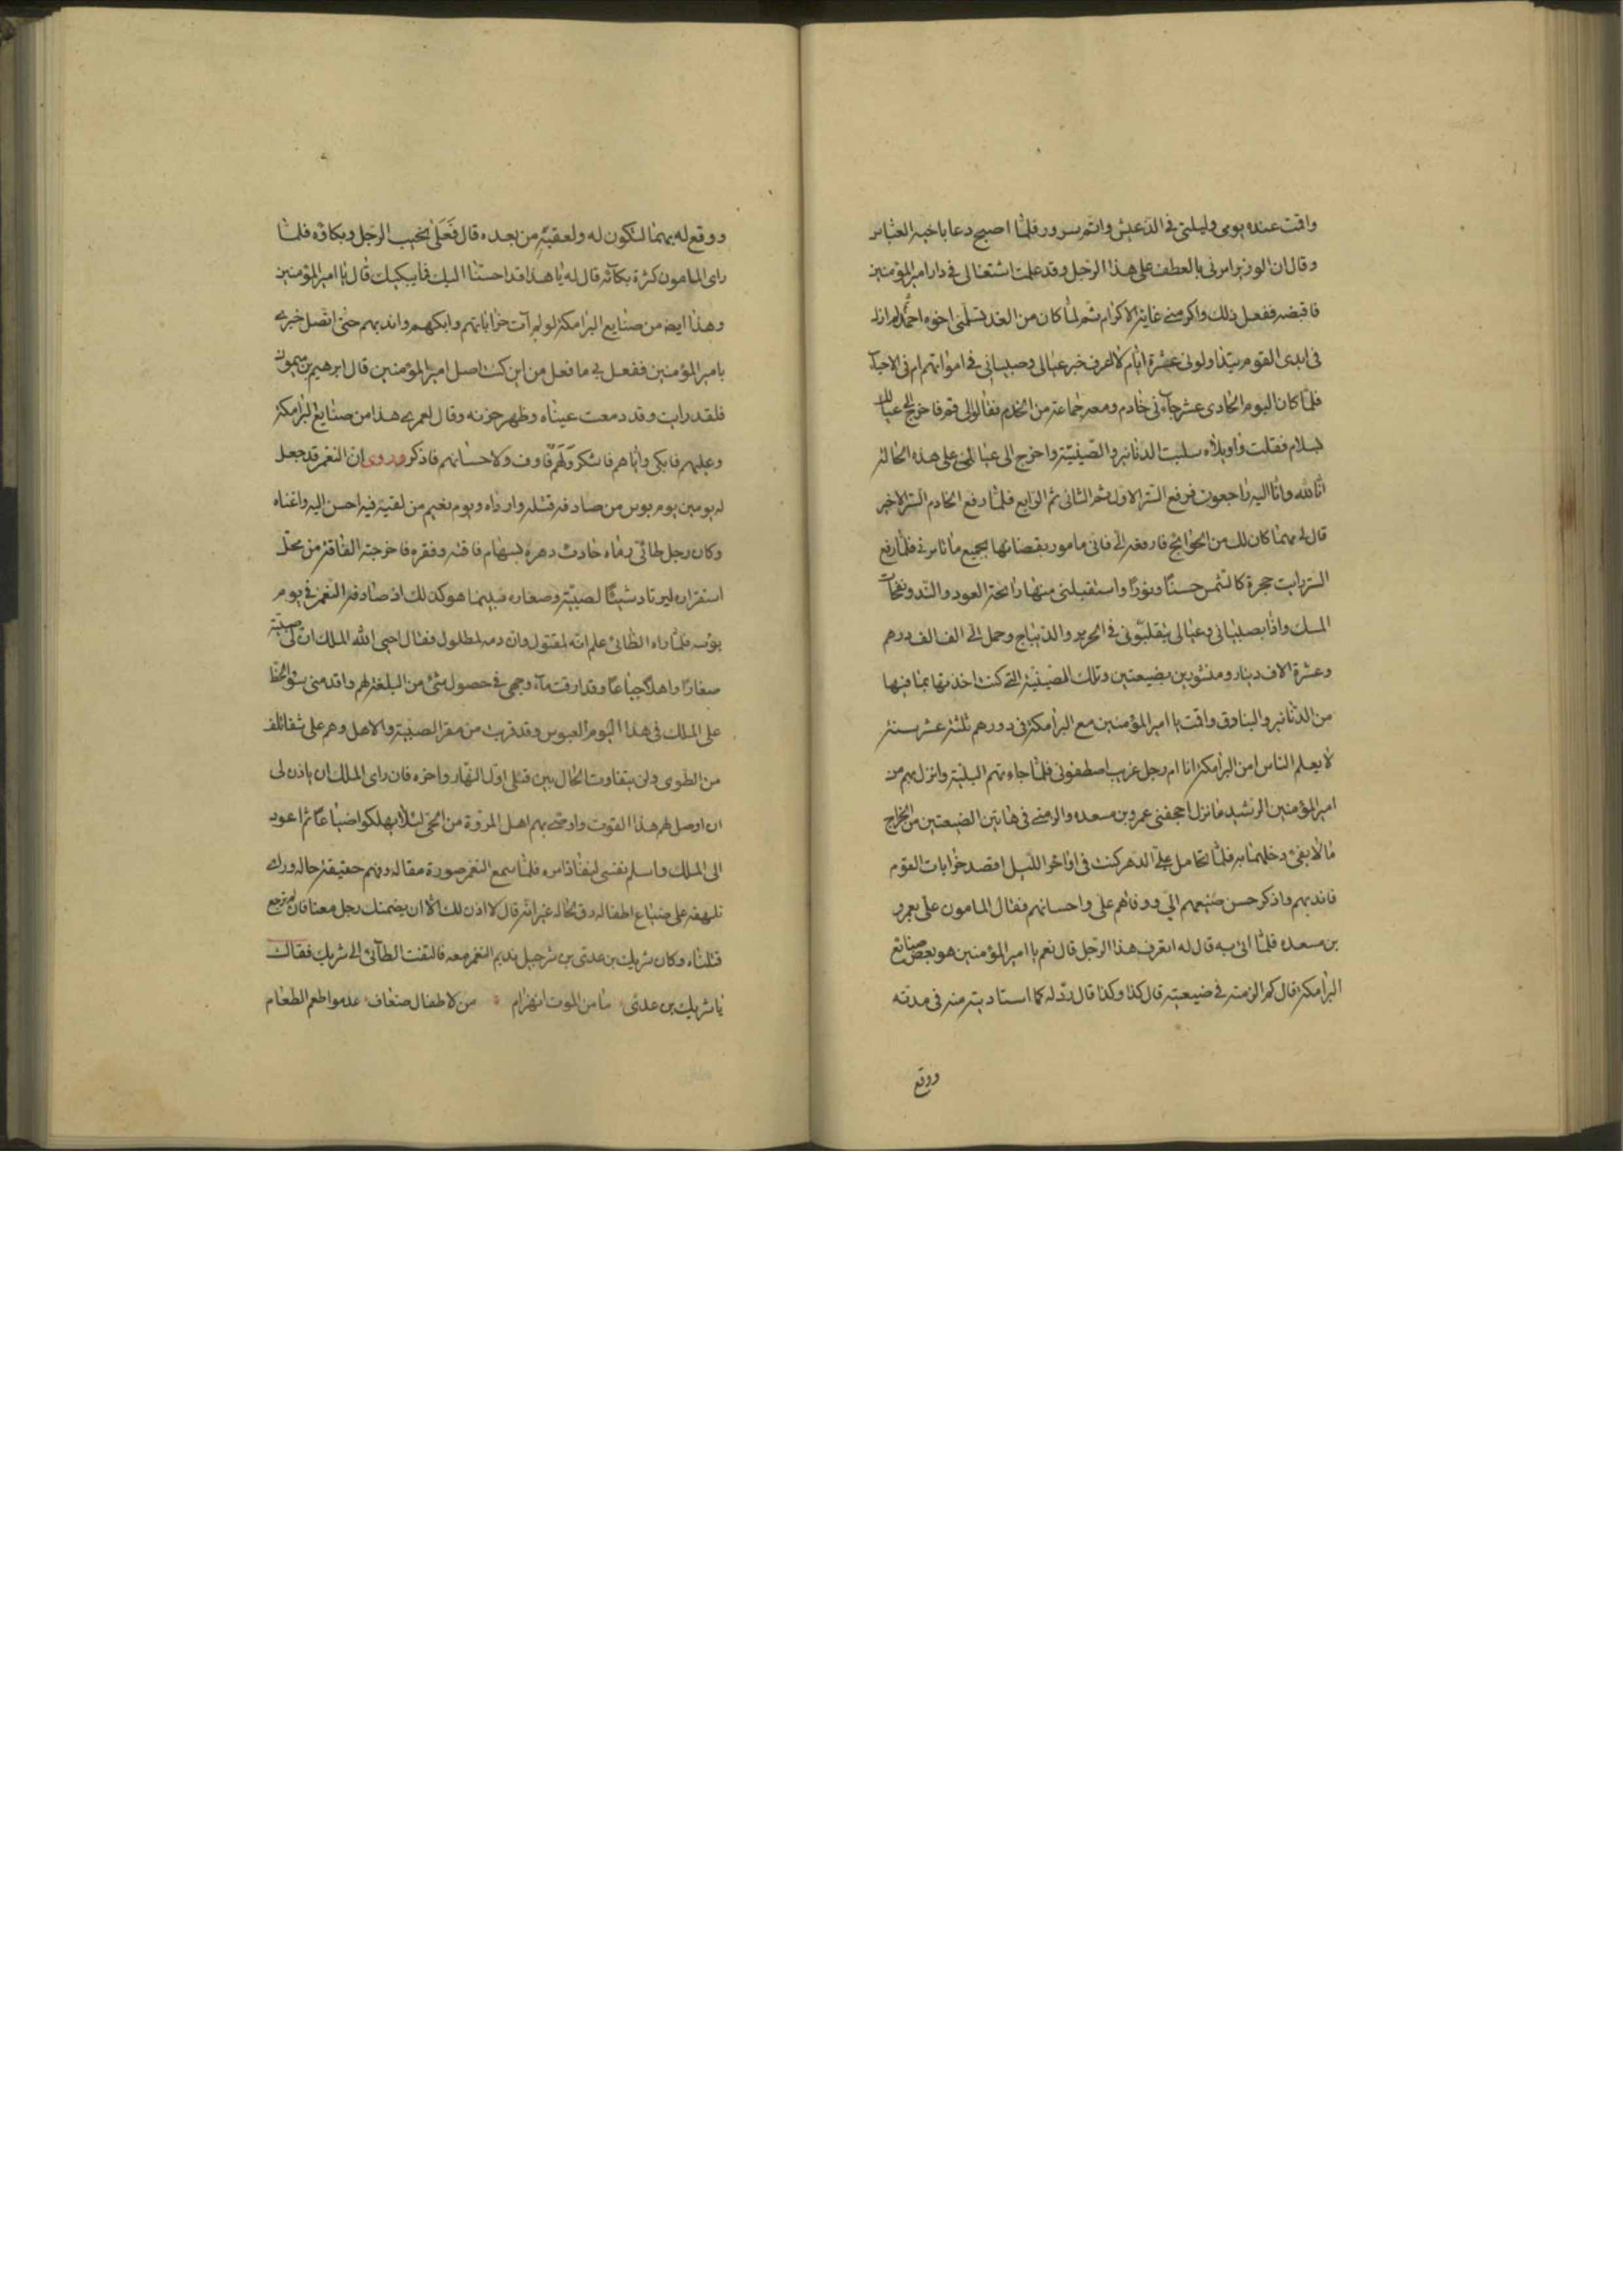 واقمت عنده يومى وليلتى فى الذ عيش واتم سرور فلما اصبح دعا باخيه العباس
وقال ان الوزير امرنى بالعطف على هذا الرجل وقد علمت اشتغالى فى دار امير المؤمنين
فاقبضه ففعل ذلك واكرمنى غاية الاكرام ثم لما كان من الغد تسلمنى اخوه احمد ولم ازل
فى ايدى القوم يتداولونى عشرة ايام لا اعرف خبر عيالى وصبيانى فى امواتهم ام فى الاحياء
فلما كان اليوم الحادى عشر جاءنى خادم ومعه جماعة من الخدم فقالوا لى قم فاخرج الى عيالك
بسلام فقلت واويلاه سلبت الدنانير والصينية واخرج الى عيالى على هذه الحالة
انا لله وانا اليه راجعون فرفع الستر الاول ثم الثانى ثم الرابع فلما رفع الخادم الستر الاخير
قال لى مهما كان لك من الحوائج فارفعه الى فانى مامور بقضائها بجميع ما تامرنى فلما رفع
الستر رايت حجرة كالشمس حسنا ونورا واستقبلنى منها رائحة العود والند ونفحات
المسك واذا بصبيانى وعيالى يتقلبون فى الحرير والديباج وحمل الى الف الف درهم
وعشرة الاف دينار ومنشورين بضيعتين وتلك الصينية التى كنت اخذتها بما فيها
من الدنانير والبنادق واقمت يا امير المؤمنين مع البرامكة فى دورهم ثلثة عشر سنة
لا يعلم الناس امن البرامكة انا ام رجل غريب اصطفونى فلما جاءتهم البلية وانزل بهم من
امير المؤمنين الرشيد ما نزل احجفنى عمرو بن مسعده والزمنى فى هاتين الضيعتين من الخراج
ما لا يفئ دخلهما به فلما تحامل على الدهر كنت فى اواخر الليل اقصد خرابات القوم
فاندبهم واذكر حسن صنيعهم الى ووفاهم على واحسانهم فقال المامون على بعمرو
بن مسعده فلما اتى به قال له اتعرف هذا الرجل قال نعم يا امير المؤمنين هو بعض صنائع
البرامكة قال كم الزمته فى ضيعتيه قال كذا وكذا قال رد له كلما استاديته منه فى مدته
ووقع
ووقع له بهما لتكون له ولعقبه من بعده قال فعلى نحيب الرجل وبكاؤه فلما
راى المامون كثرة بكائه قال له يا هذا قد احسنا اليك فما يبكيك قال يا امير المؤمنين
وهذا ايضا من صنايع البرامكة لو لم آت خراباتهم وابكهم واندبهم حتى اتصل خبرى
بامير المؤمنين ففعل بى ما فعل من اين كنت اصل امير المؤمنين قال ابرهيم بن ميمون
فلقد رايت وقد دمعت عيناه وظهر حزنه وقال لعمرى هذا من صنايع البرامكة
وعليهم فابكى واياهم فاشكر ولهم فاوف ولاحسانهم فاذكر وروى ان النعمن قد جعل
له يومين يوم بوس من صادفه قتله وارداه ويوم نعيم من لقيه فيه احسن اليه واغناه
وكان رجل طائى رماه حادث دهره بسهام فاقته وفقره فاخرجته الفاقة من محل
استقراره ليرتاد شيئا لصبيته وصغاره فبينما هو كذلك اذ صادفه النعمن فى يوم
بؤسه فلما راه الطائى علم انه لمقتول وان دمه لمطلول فقال احيى الله الملك ان لى صبية
صغارا واهلا جياعا وقد ارقت ماء وجهى فى حصول شئ من البلغة لهم واقدمنى سوء الحظ
على الملك فى هذا اليوم العبوس وقد قربت من مقر الصبية والاهل وهم على شفا تلف
من الطوى ولن يتفاوت الحال بين قتلى اول النهار واخره فان راى الملك ان ياذن لى
ان اوصل لهم هذا القوت واوصى بهم اهل المروة من الحى لئلا يهلكوا ضياعا ثم اعود
الى الملك واسلم نفسى لنفاذ امره فلما سمع النعمن صورة مقاله وفهم حقيقة حاله ورأى
تلهفه على ضياع اطفاله رق لحاله غير انه قال لا اذن لك الا ان يضمنك رجل معنا فان لم ترجع
قتلناه وكان شريك بن عدى بن شرحبيل نديم النعمن معه فالتفت الطائى الى شريك فقال
يا شريك بن عدى ما من الموت انهزام من لاطفال ضعاف عدموا طعم الطعام